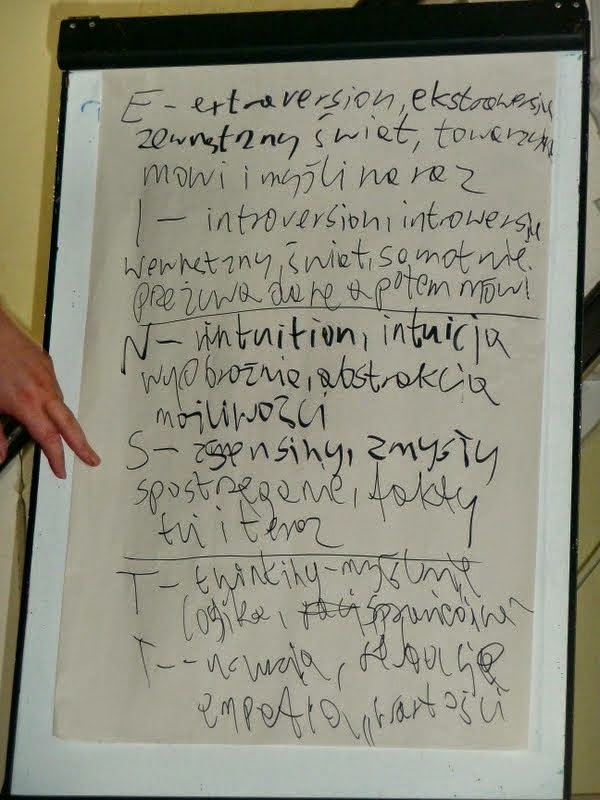 E - extraversion, ekstrawersja
zewnętrzny świat, towarzys
mówi i myśli naraz
I - introversion, introwersja
wewnętrzny, świat, samotnie
przeżuwa dane a potem mówi
N - intuition, intuicja
wyobraźnia, abstrakcja
możliwości
S - sensing, zmysły
spostrzeganie, fakty
tu i teraz
T - thinking - myślenie
logika,
empatia, wartości